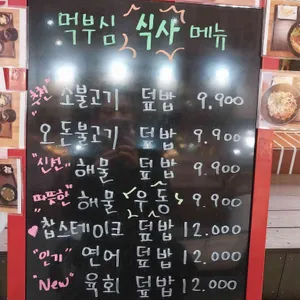 먹부심 식사 메뉴
"추천" 소불고기 덮밥 9.900
오돈불고기 덮밥 9.900
"신선" 해물 덮밥 9.900
"따뜻한" 해물 우동 9.900
찹스테이크 덮밥 12.000
"인기" 연어 덮밥 12.000
"New" 육회 덮밥 12.000